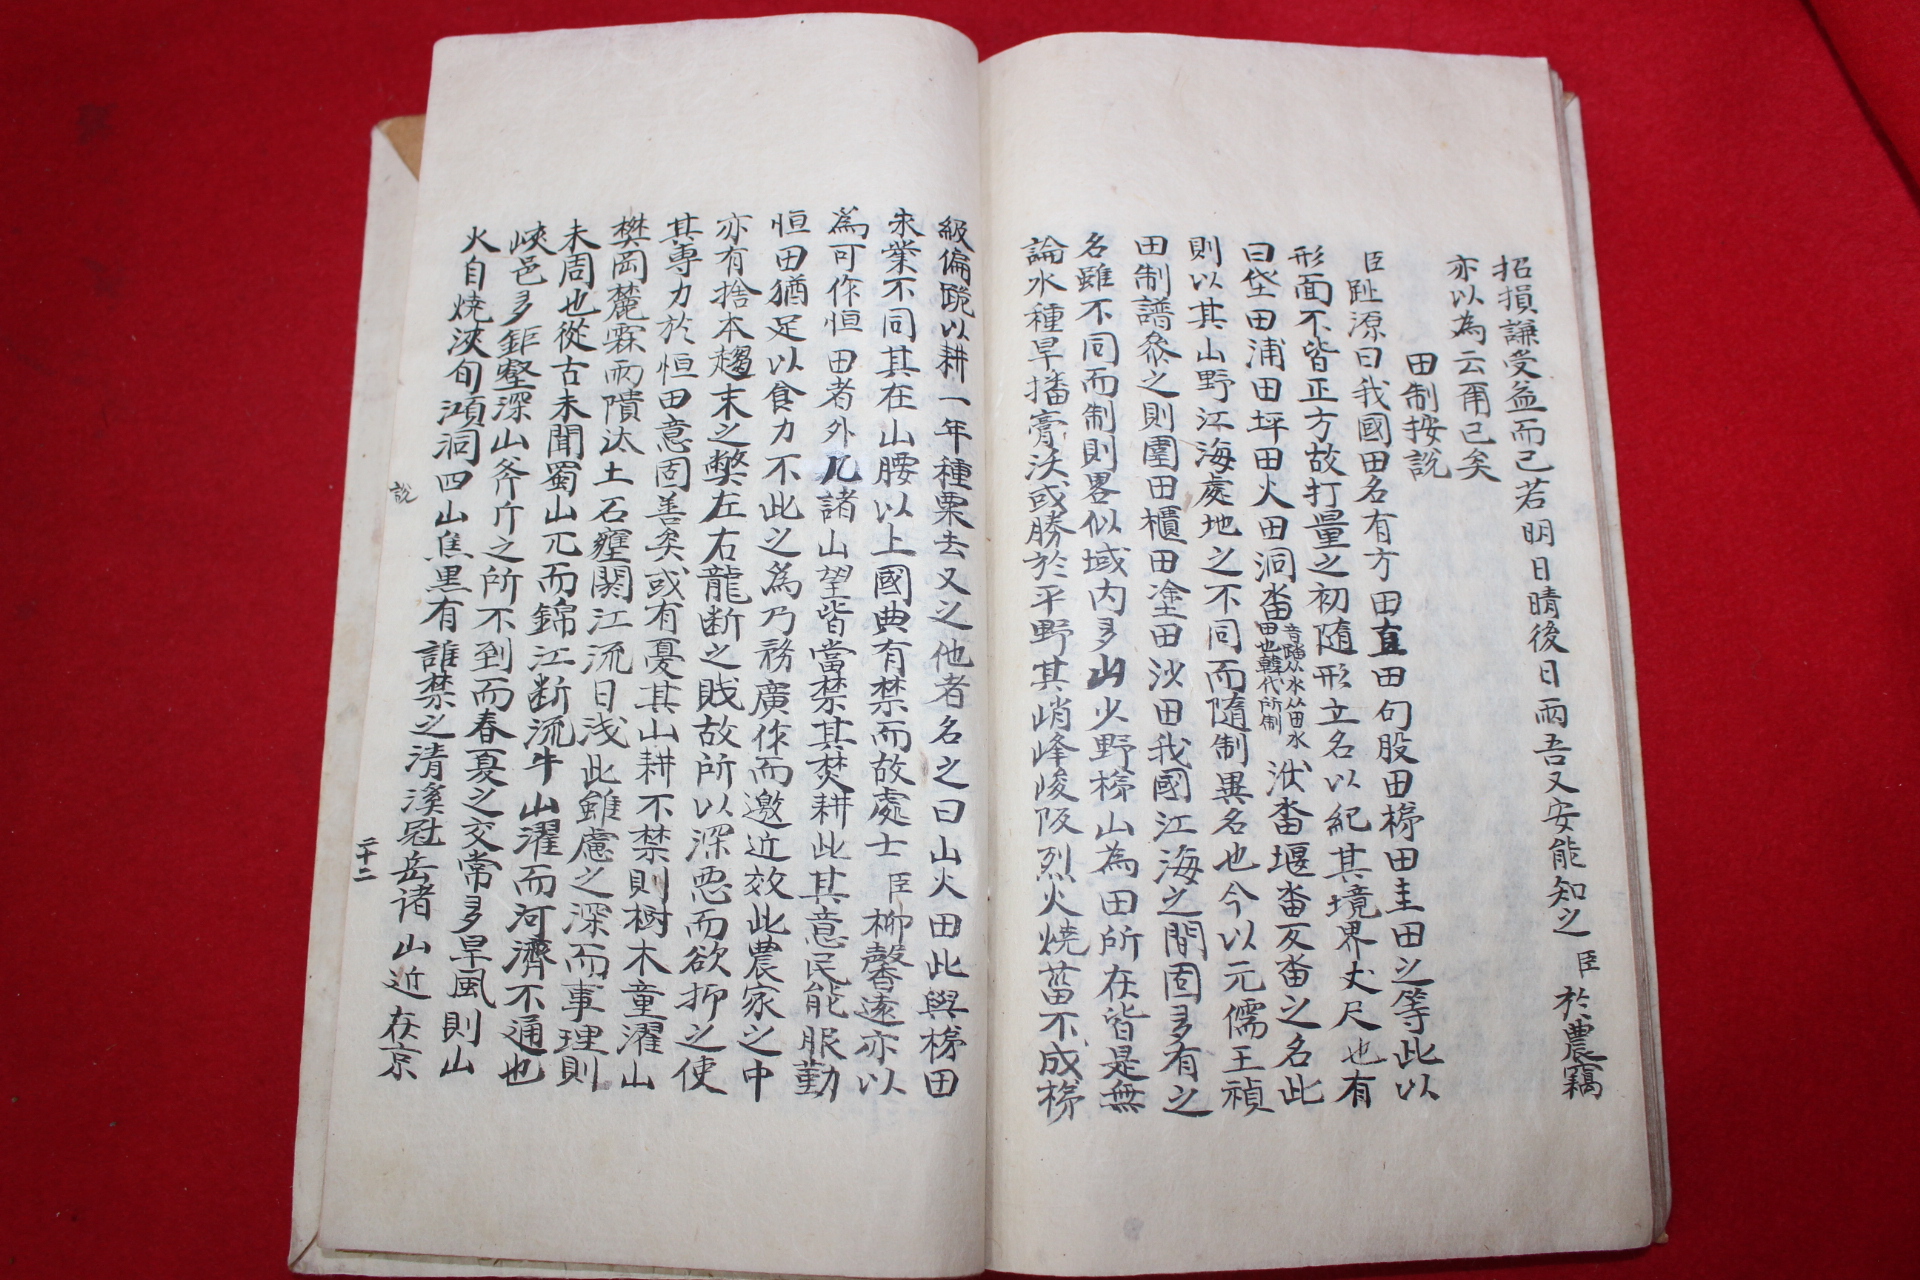 招損謙受益而已若明日晴後日雨吾又安能知之 臣 於農竊
亦以為云爾已矣
田制按說
臣趾源曰我國田名有方田直田句股田梯田圭田之等此以
形面不皆正方故打量之初隨形立名以紀其境界丈尺也有
曰垈田浦田坪田火田洞畓 音踏从水从田水
田也韓代所制 洑畓堰畓反畓之名此
則以其山野江海處地之不同而隨制異名也今以元儒王禎
田制譜叅之則圍田櫃田塗田沙田我國江海之間固多有之
名雖不同而制則畧似域内多山少野梯山為田所在皆是無
論水種旱播膏沃或勝於平野其峭峰峻阪烈火燒菑不成梯
級偏跪以耕一年種粟去又之他者名之曰山火田此與梯田
耒業不同其在山腰以上國典有禁而故處士 臣 柳馨遠亦以
為可作恒田者外凡諸山望皆當禁其焚耕此其意民能服勤
恒田猶足以食力不此之為乃務廣作而邀近效此農家之中
亦有捨本趨末之弊左右龍斷之賤故所以深惡而欲抑之使
其專力於恒田意固善矣或有憂其山耕不禁則樹木童濯山
樊岡麓霖雨隤汰土石壅閼江流日淺此雖慮之深而事理則
未周也從古未聞蜀山兀而錦江断流牛山濯而河濟不通也
峽邑多鉅壑深山斧斤之所不到而春夏之交常多旱風則山
火自燒浹旬澒洞四山焦黒有誰禁之清溪冠岳诸山近在京
說
二十二